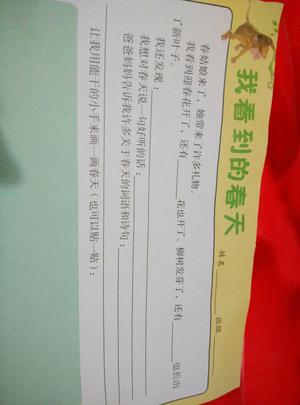 我看到的春天
姓名______ 班级______
春姑娘来了，她带来了许多礼物。
我看到迎春花开了，还有______花也开了。柳树发芽了，还有______也长出
了新叶子。
我还发现：
我想对春天说一句好听的话：
爸爸妈妈告诉我许多关于春天的词语和诗句：
让我用能干的小手来画一画春天（也可以贴一贴）：